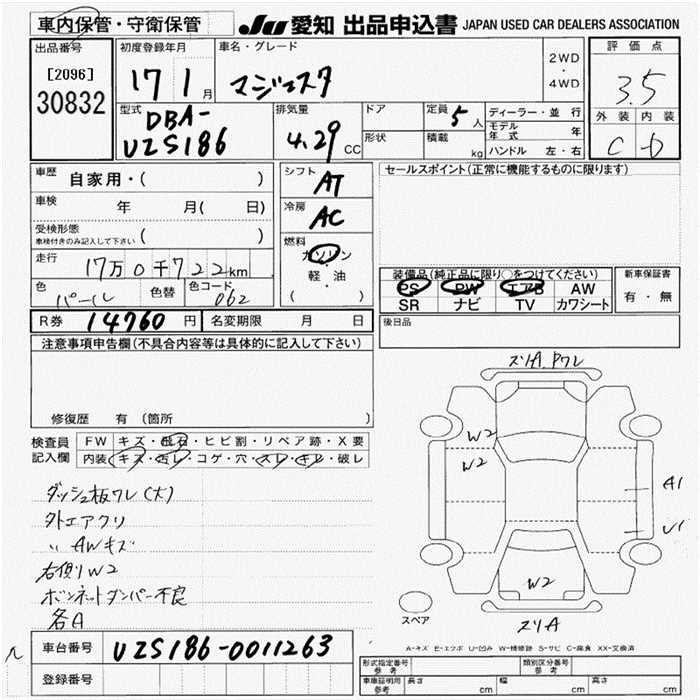 車内保管・守衛保管
JU 愛知 出品申込書 JAPAN USED CAR DEALERS ASSOCIATION
出品番号
[2096]
30832
初度登録年月
17 1 月
車名・グレード
マジェスタ
2WD
・
4WD
評価点
3.5
外装 内装
C D
型式
DBA-
UZS186
排気量
4.29 CC
ドア
形状
定員 5 人
積載 kg
ディーラー・並行
モデル年式 年
ハンドル 左・右
車歴 自家用・( )
車検 年 月( 日)
受検形態
車検付きのみ記入して下さい ( )
走行 17万0千722km
色 パール 色替 色コード 062
シフト AT
冷房 AC
燃料
ガソリン
・
軽・油
( )
セールスポイント(正常に機能するものに限ります)
装備品(純正品に限り○をつけてください)
PS PW エアB AW
SR ナビ TV カワシート
新車保証書
有・無
後日品
R券 14760 円 名変期限 月 日
注意事項申告欄(不具合内容等は具体的に記入して下さい)
修復歴 有 (箇所 )
検査員記入欄
FW キズ・飛石・ヒビ割・リペア跡・X要
内装 キズ・汚レ・コゲ・穴・スレ・キレ・破レ
ダッシュ板ワレ(大)
外エアクリ
〃 AWキズ
右側リW2
ボンネットダンパー不良
各A
スリA Pワレ
W2
W2
A1
U1
W2
スリA
スペア
A-キズ E-エクボ U-凹み W-補修跡 S-サビ C-腐食 XX-交換済
車台番号 UZS186-0011263
登録番号
型式指定番号
参考
類別区分番号
参考
車庫証明用
参考
長さ cm 幅 cm 高さ cm